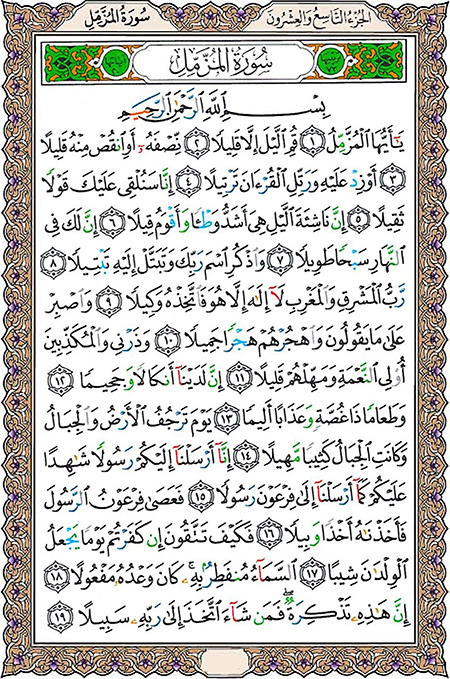 سُورَةُ المُزَّمِّل الجُزءُ التَّاسِعُ وَالعِشْرُون
سُورَةُ المُزَّمِّل
بِسْمِ ٱللَّهِ ٱلرَّحْمَٰنِ ٱلرَّحِيمِ
يَٰٓأَيُّهَا ٱلْمُزَّمِّلُ ١ قُمِ ٱلَّيْلَ إِلَّا قَلِيلًا ٢ نِّصْفَهُۥٓ أَوِ ٱنقُصْ مِنْهُ قَلِيلًا
٣ أَوْ زِدْ عَلَيْهِ وَرَتِّلِ ٱلْقُرْءَانَ تَرْتِيلًا ٤ إِنَّا سَنُلْقِى عَلَيْكَ قَوْلًا
ثَقِيلًا ٥ إِنَّ نَاشِئَةَ ٱلَّيْلِ هِىَ أَشَدُّ وَطْـًٔا وَأَقْوَمُ قِيلًا ٦ إِنَّ لَكَ فِى
ٱلنَّهَارِ سَبْحًا طَوِيلًا ٧ وَٱذْكُرِ ٱسْمَ رَبِّكَ وَتَبَتَّلْ إِلَيْهِ تَبْتِيلًا ٨
رَّبُّ ٱلْمَشْرِقِ وَٱلْمَغْرِبِ لَآ إِلَٰهَ إِلَّا هُوَ فَٱتَّخِذْهُ وَكِيلًا ٩ وَٱصْبِرْ
عَلَىٰ مَا يَقُولُونَ وَٱهْجُرْهُمْ هَجْرًا جَمِيلًا ١٠ وَذَرْنِى وَٱلْمُكَذِّبِينَ
أُو۟لِى ٱلنَّعْمَةِ وَمَهِّلْهُمْ قَلِيلًا ١١ إِنَّ لَدَيْنَآ أَنكَالًا وَجَحِيمًا ١٢
وَطَعَامًا ذَا غُصَّةٍ وَعَذَابًا أَلِيمًا ١٣ يَوْمَ تَرْجُفُ ٱلْأَرْضُ وَٱلْجِبَالُ
وَكَانَتِ ٱلْجِبَالُ كَثِيبًا مَّهِيلًا ١٤ إِنَّآ أَرْسَلْنَآ إِلَيْكُمْ رَسُولًا شَٰهِدًا
عَلَيْكُمْ كَمَآ أَرْسَلْنَآ إِلَىٰ فِرْعَوْنَ رَسُولًا ١٥ فَعَصَىٰ فِرْعَوْنُ ٱلرَّسُولَ
فَأَخَذْنَٰهُ أَخْذًا وَبِيلًا ١٦ فَكَيْفَ تَتَّقُونَ إِن كَفَرْتُمْ يَوْمًا يَجْعَلُ
ٱلْوِلْدَٰنَ شِيبًا ١٧ ٱلسَّمَآءُ مُنفَطِرٌۢ بِهِۦ ۚ كَانَ وَعْدُهُۥ مَفْعُولًا ١٨
إِنَّ هَٰذِهِۦ تَذْكِرَةٌ ۖ فَمَن شَآءَ ٱتَّخَذَ إِلَىٰ رَبِّهِۦ سَبِيلًا ١٩